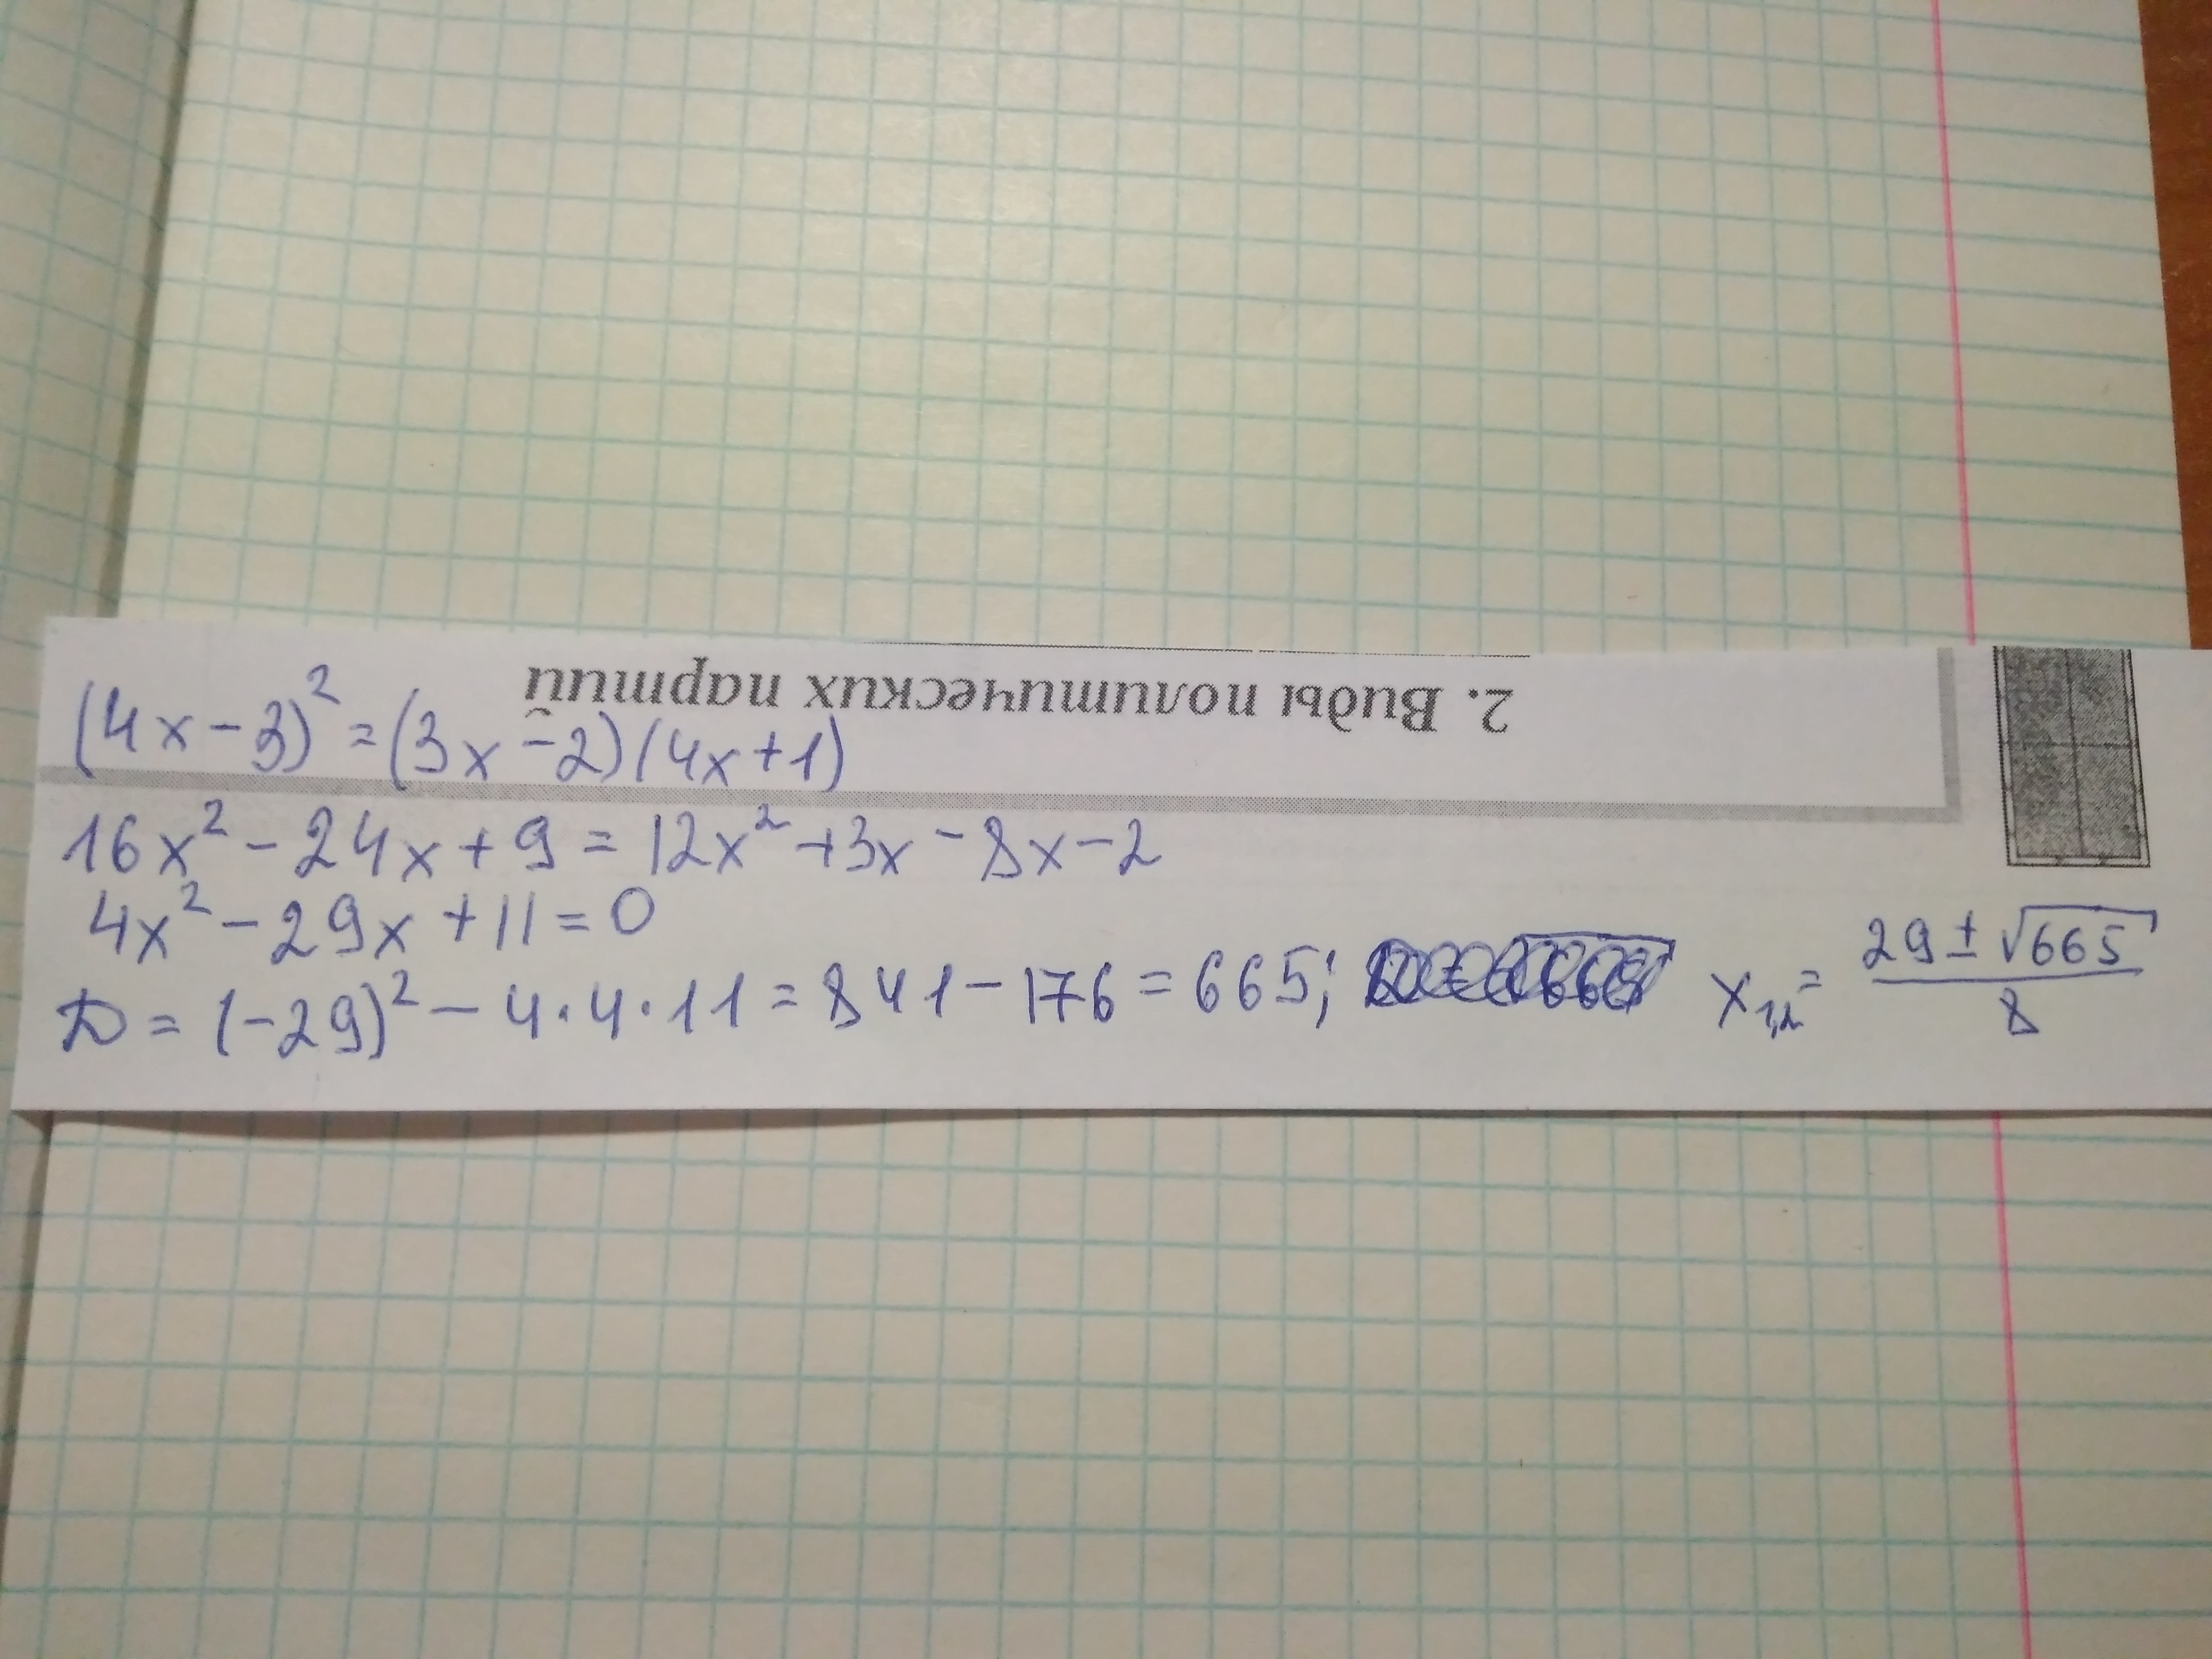 2. Виды политических партий
(4x-3)²=(3x-2)(4x+1)
16x²-24x+9=12x²+3x-8x-2
4x²-29x+11=0
D=(-29)²-4·4·11=841-176=665; x₁,₂= (29±√665)/8